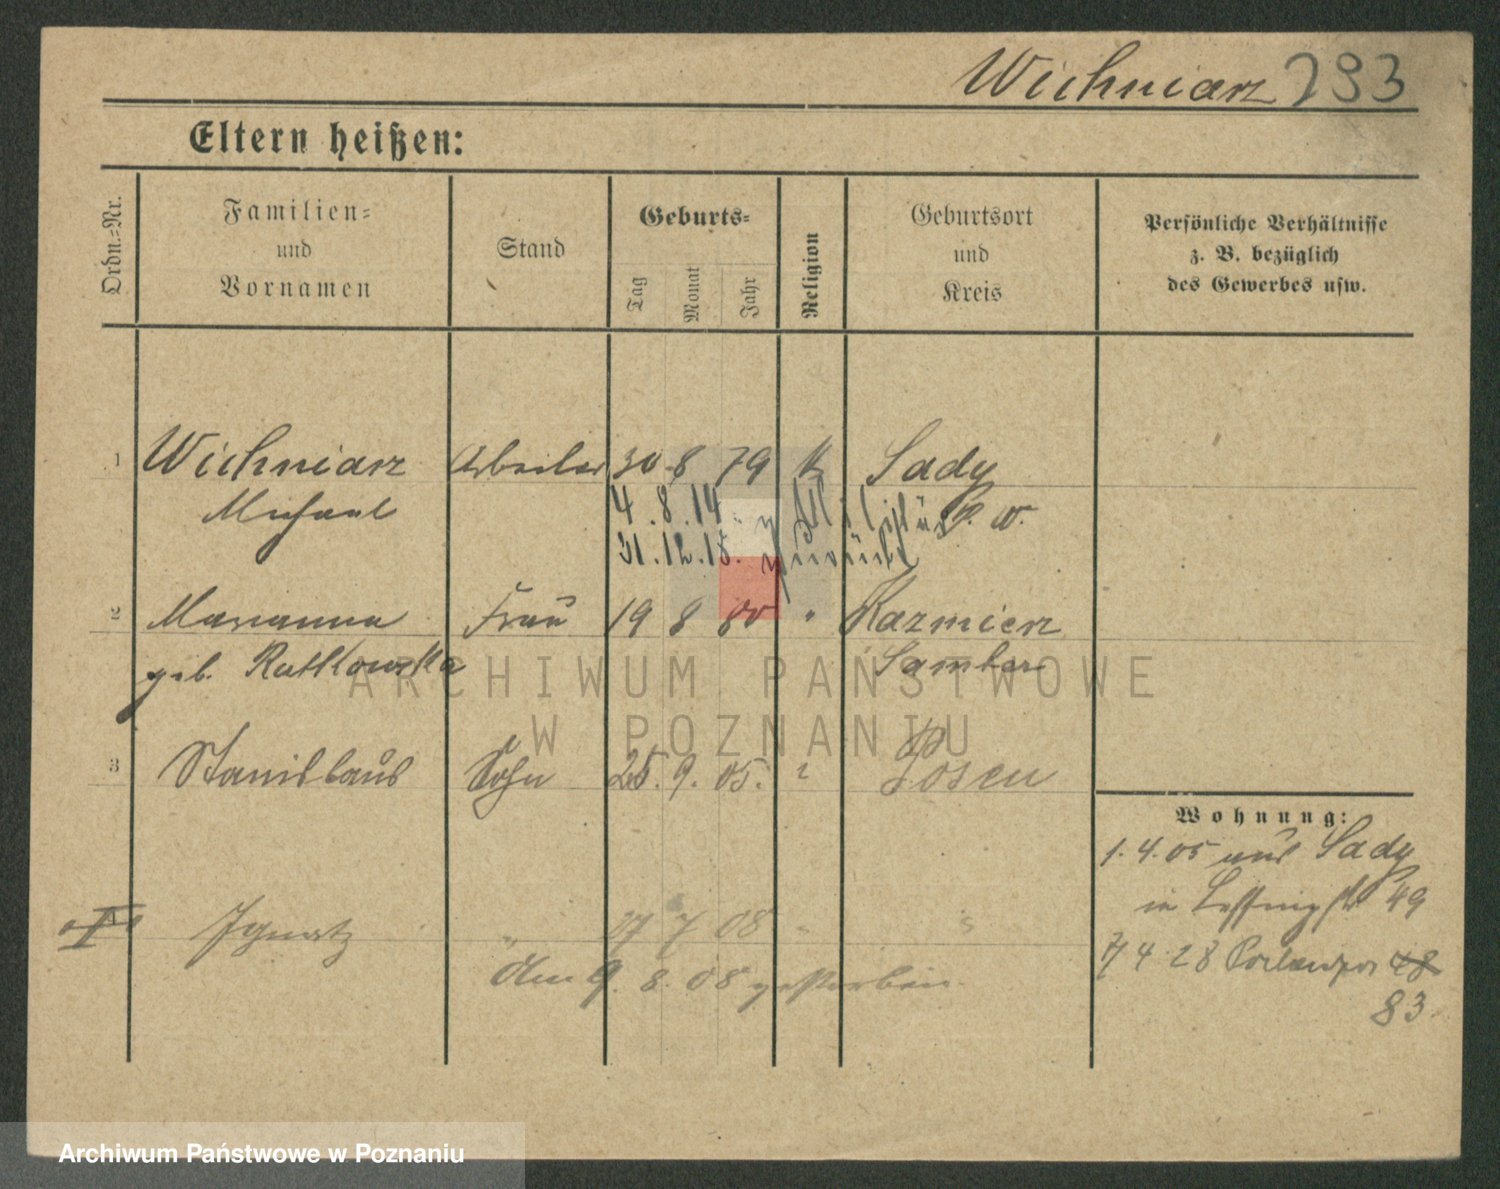 Wichniarz 793
Eltern heißen:
Ordn.=Nr.
Familien=
und
Vornamen
Stand
Geburts=
Tag
Monat
Jahr
Religion
Geburtsort
und
Kreis
Persönliche Verhältnisse
z. B. bezüglich
des Gewerbes usw.
1 Wichniarz Arbeiter 30 8 79 K Sady
Michael P. W.
4.8.14 z. Militär
31.12.18. zurück
2 Marianna Frau 19 8 80 " Kazmierz
geb. Rutkowska Samter
3 Stanislaus Sohn 25. 9. 05. " Posen
Wohnung:
1.4.05 aus Sady
in Lessingstr 49
7 4 28 48
83.
Ignatz " 17 7 08 " "
Am 9. 8. 08 gestorben.
ARCHIWUM PAŃSTWOWE
W POZNANIU
Archiwum Państwowe w Poznaniu